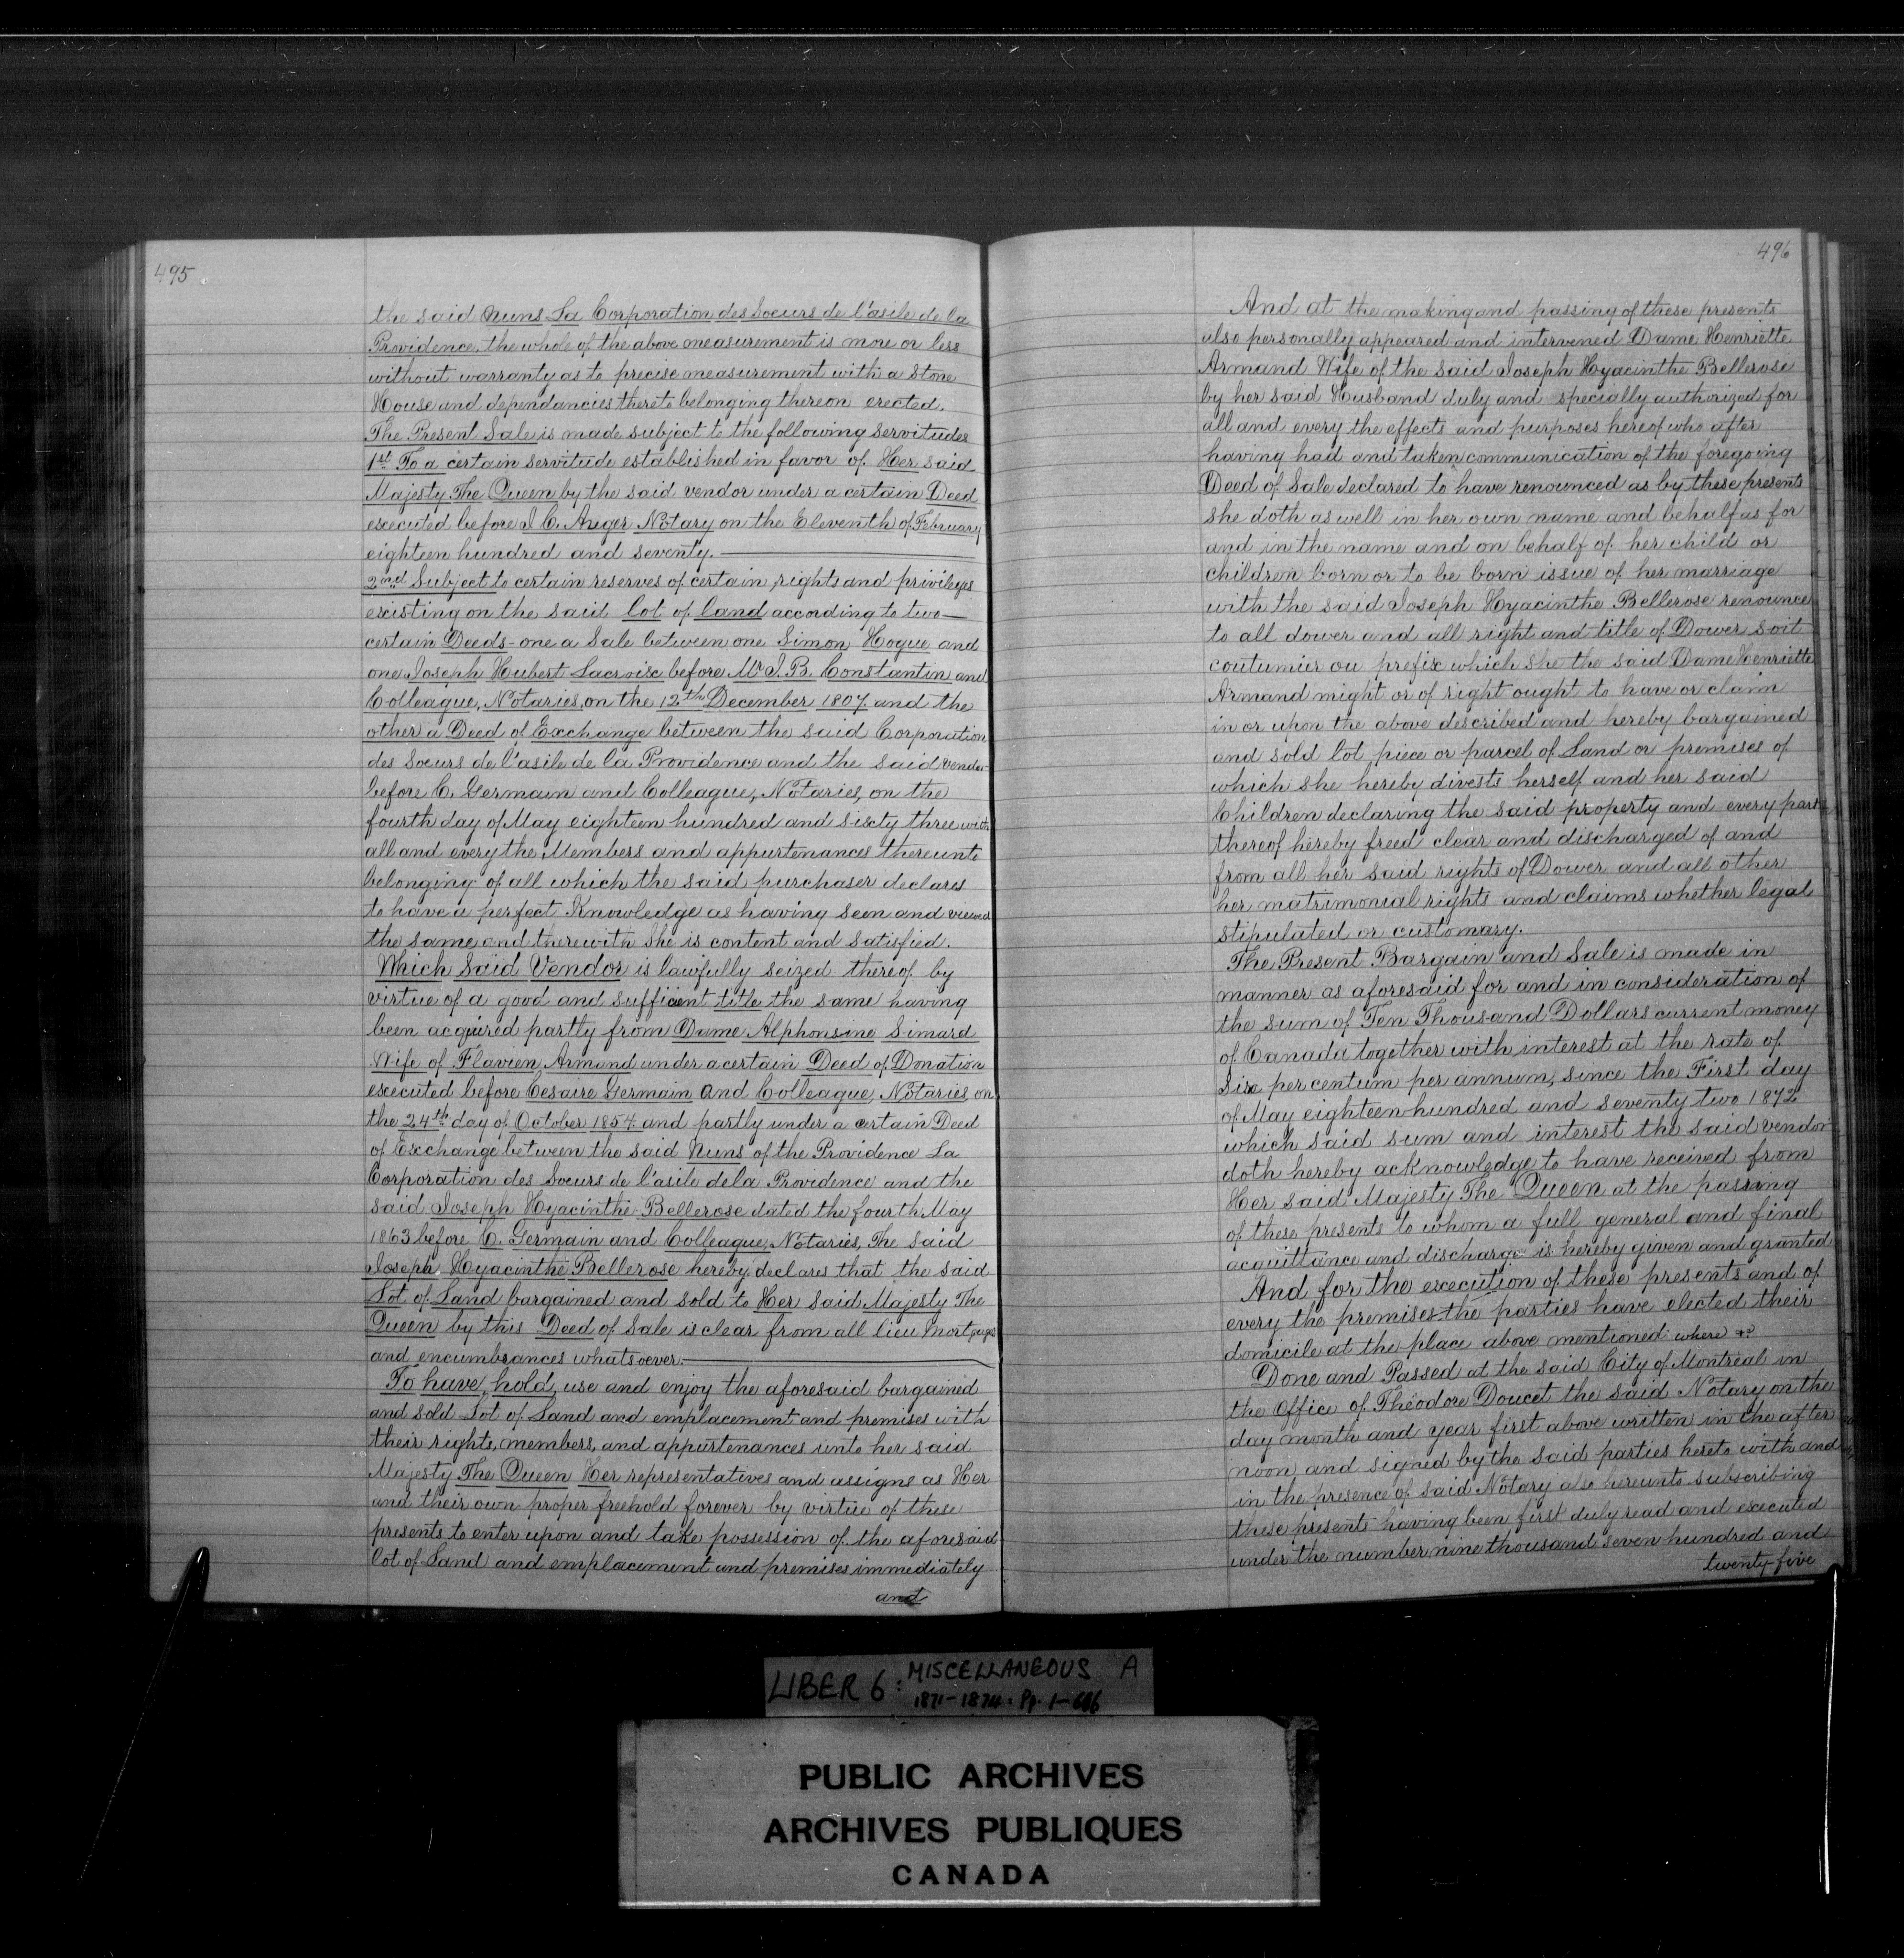 495
the said Nuns La Corporation des Soeurs de l'asile de la
Providence, the whole of the above measurement is more or less
without warranty as to precise measurement with a Stone
House and dependancies thereto belonging thereon erected.
The Present Sale is made subject to the following Servitudes
1st To a certain servitude established in favor of Her said
Majesty The Queen by the said vendor under a certain Deed
executed before J. C. Auger Notary on the Eleventh of February
eighteen hundred and seventy.
2nd Subject to certain reserves of certain rights and privileges
existing on the said lot of land according to two
certain Deeds - one a Sale between one Simon Hogue and
one Joseph Hubert Lacroix before Mr J. B. Constantin and
Colleague, Notaries, on the 12th December 1807. and the
other a Deed of Exchange between the said Corporation
des Soeurs de l'asile de la Providence and the said vendor
before C. Germain and Colleague, Notaries, on the
fourth day of May eighteen hundred and sixty three with
all and every the Members and appurtenances thereunto
belonging of all which the said purchaser declares
to have a perfect Knowledge as having seen and viewed
the same and therewith She is content and satisfied.
Which Said Vendor is lawfully seized thereof by
virtue of a good and sufficient title the same having
been acquired partly from Dame Alphonsine Simard
Wife of Flavien Armand under a certain Deed of Donation
executed before Cesaire Germain and Colleague, Notaries on
the 24th day of October 1854. and partly under a certain Deed
of Exchange between the said Nuns of the Providence La
Corporation des Soeurs de l'asile de la Providence and the
said Joseph Hyacinthe Bellerose dated the fourth May
1863 before C. Germain and Colleague, Notaries, The said
Joseph Hyacinthe Bellerose hereby declares that the said
Lot of Land bargained and sold to Her said Majesty The
Queen by this Deed of Sale is clear from all lieu Mortgages
and encumbrances whatsoever.
To have, hold, use and enjoy the aforesaid bargained
and sold Lot of Land and emplacement and premises with
their rights, members, and appurtenances unto her said
Majesty The Queen Her representatives and assigns as Her
and their own proper freehold forever by virtue of these
presents to enter upon and take possession of the aforesaid
lot of Land and emplacement and premises immediately
and
496
And at the making and passing of these presents
also personally appeared and intervened Dame Henriette
Armand Wife of the said Joseph Hyacinthe Bellerose
by her said Husband duly and specially authorized for
all and every the effects and purposes hereof who after
having had and taken communication of the foregoing
Deed of Sale declared to have renounced as by these presents
she doth as well in her own name and behalf as for
and in the name and on behalf of her child or
children born or to be born issue of her marriage
with the said Joseph Hyacinthe Bellerose renounce
to all dower and all right and title of Dower soit
coutumier ou prefix which she the said Dame Henriette
Armand might or of right ought to have or claim
in or upon the above described and hereby bargained
and sold lot piece or parcel of Land or premises of
which she hereby divests herself and her said
Children declaring the said property and every part
thereof hereby freed clear and discharged of and
from all her said rights of Dower and all other
her matrimonial rights and claims whether legal
stipulated or customary.
The Present Bargain and Sale is made in
manner as aforesaid for and in consideration of
the sum of Ten Thousand Dollars current money
of Canada together with interest at the rate of
Six per centum per annum, since the First day
of May eighteen hundred and seventy two 1872
which said sum and interest the said vendor
doth hereby acknowledge to have received from
Her said Majesty The Queen at the passing
of these presents to whom a full general and final
acquittance and discharge is hereby given and granted
And for the execution of these presents and of
every the premises the parties have elected their
domicile at the place above mentioned where &c
Done and Passed at the said City of Montreal in
the Office of Théodore Doucet the said Notary on the
day month and year first above written in the after
noon and signed by the said parties hereto with and
in the presence of said Notary also hereunto subscribing
these presents having been first duly read and executed
under the number nine thousand seven hundred and
twenty-five
LIBER 6: MISCELLANEOUS A
1871-1874: Pp. 1-686
PUBLIC ARCHIVES
ARCHIVES PUBLIQUES
CANADA